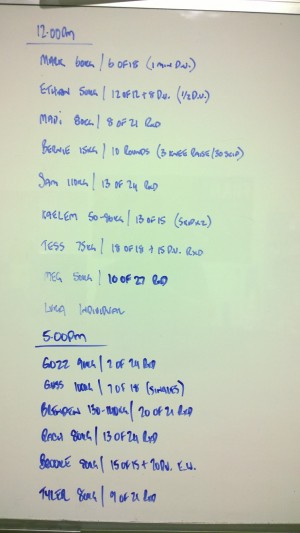 12.00pm
MARK 60KG / 6 OF 18 (1 MIN D.U.)
ETHAN 50KG / 12 OF 12 + 8 D.U. (1/2 D.U.)
MADI 80KG / 8 OF 21 RXD
BERNIE 15KG / 10 ROUNDS (3 KNEE RAISE/30 SKIP)
SAM 110KG / 13 OF 24 RXD
KAELEM 50-80KG / 13 OF 15 (SKIPX2)
TESS 75KG / 18 OF 18 + 15 D.U. RXD
MEG 80KG / 10 OF 27 RXD
LUKA INDIVIDUAL
5.00pm
GOZZ 90KG / 2 OF 24 RXD
GUSS 100KG / 7 OF 18 (SINGLES)
BRENDEN 130-100KG / 20 OF 21 RXD
RACH 80KG / 13 OF 24 RXD
BROOKE 80KG / 15 OF 15 + 20 D.U. E.U.
TYLER 80KG / 9 OF 21 RXD